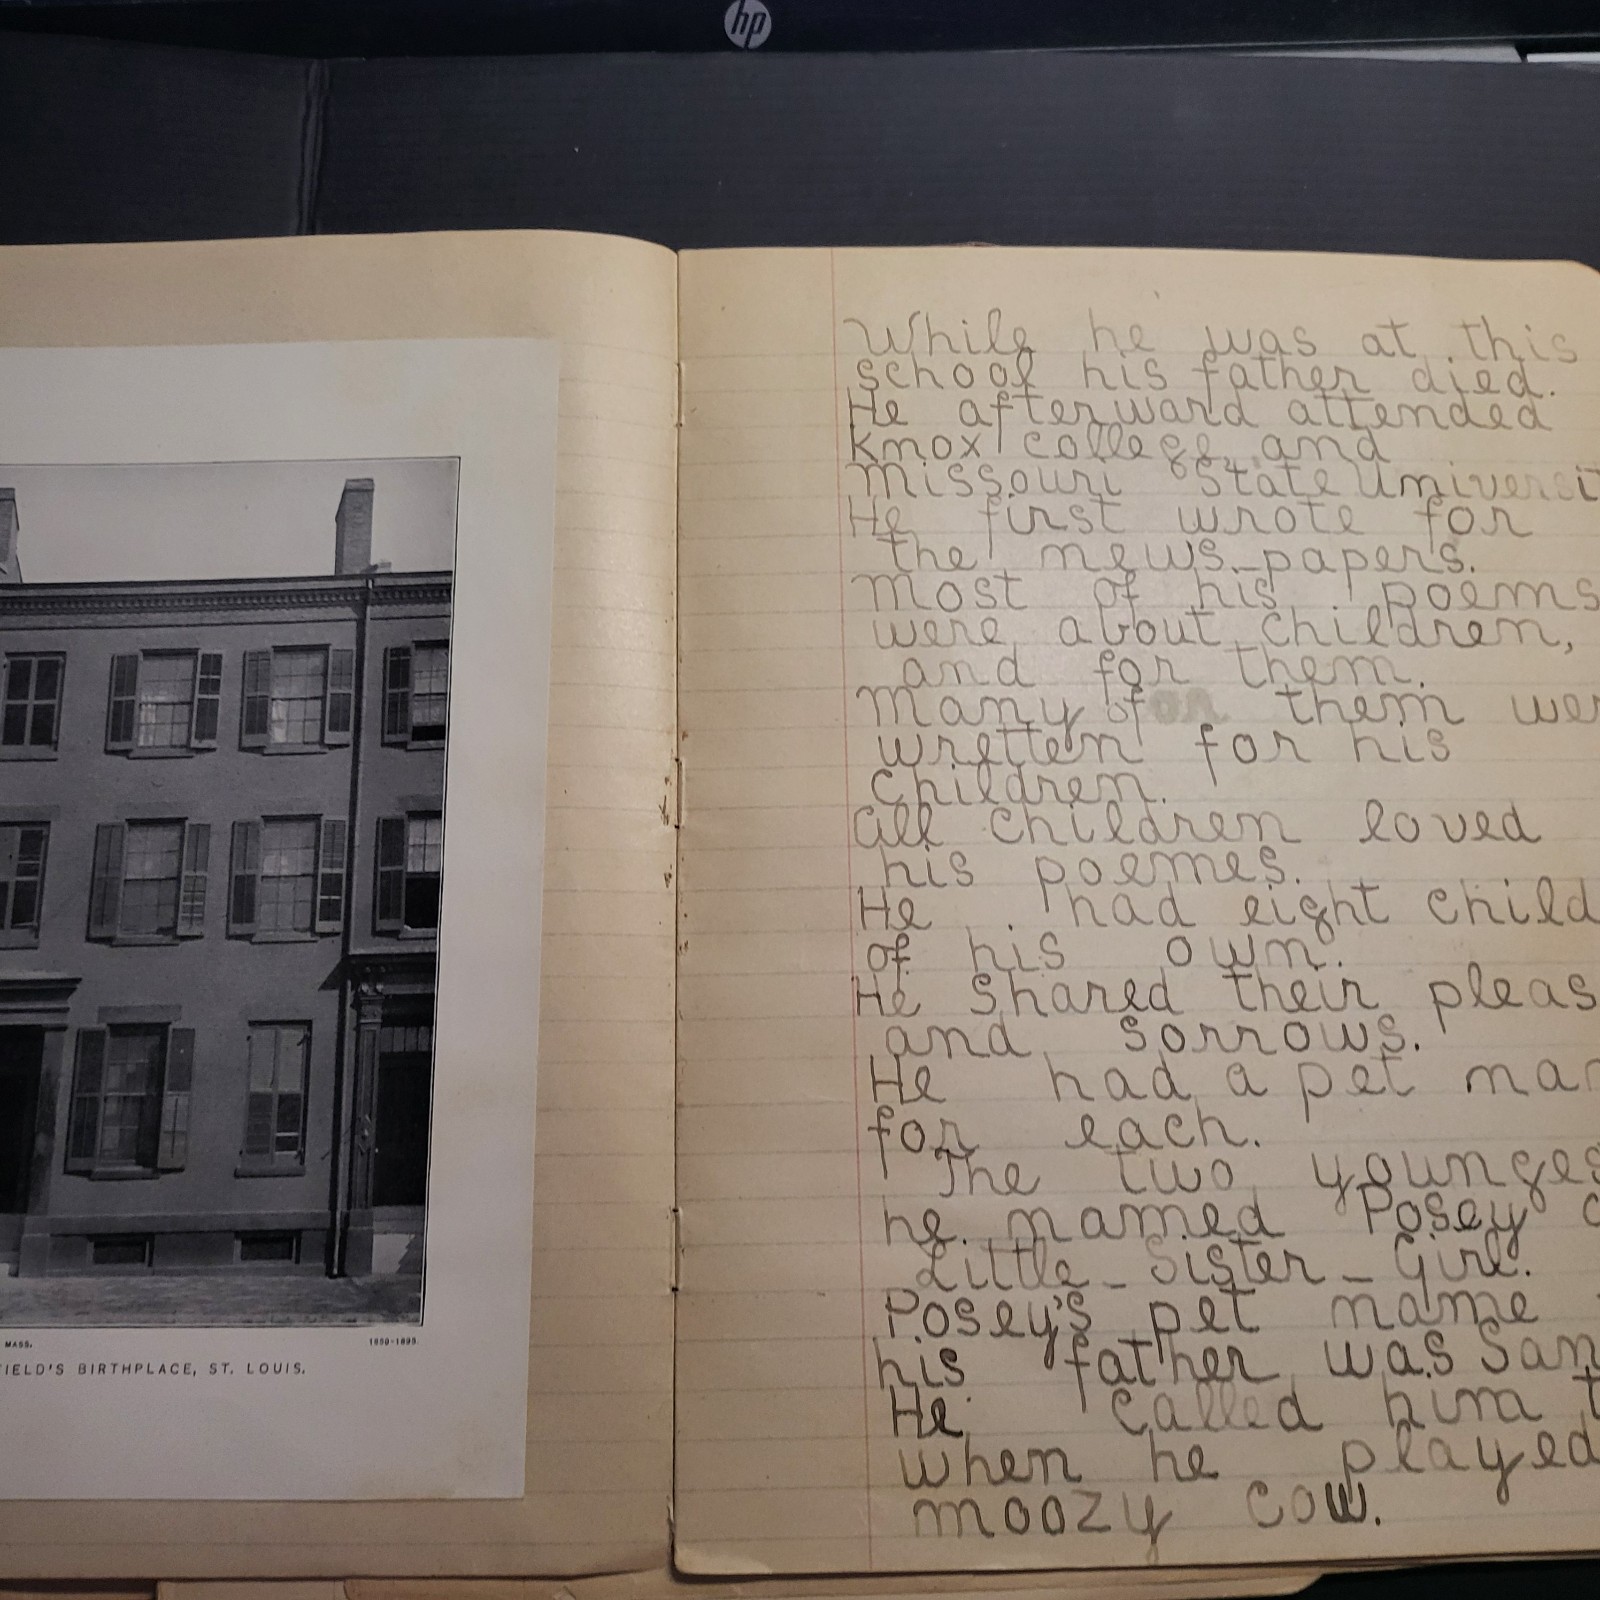 hp
MASS.
1850-1895.
FIELD'S BIRTHPLACE, ST. LOUIS.
While he was at this
school his father died.
He afterward attended
Knox college and
Missouri State Universit
He first wrote for
the news-papers.
Most of his poems
were about children,
and for them.
Many of on them wer
wretten for his
children.
All children loved
his poemes.
He had eight child
of his own.
He shared their pleas
and sorrows.
He had a pet nam
for each.
The two younges
he named Posey
Little-Sister-Girl.
Posey's pet name
his father was San
He called him t
when he played
moozy cow.